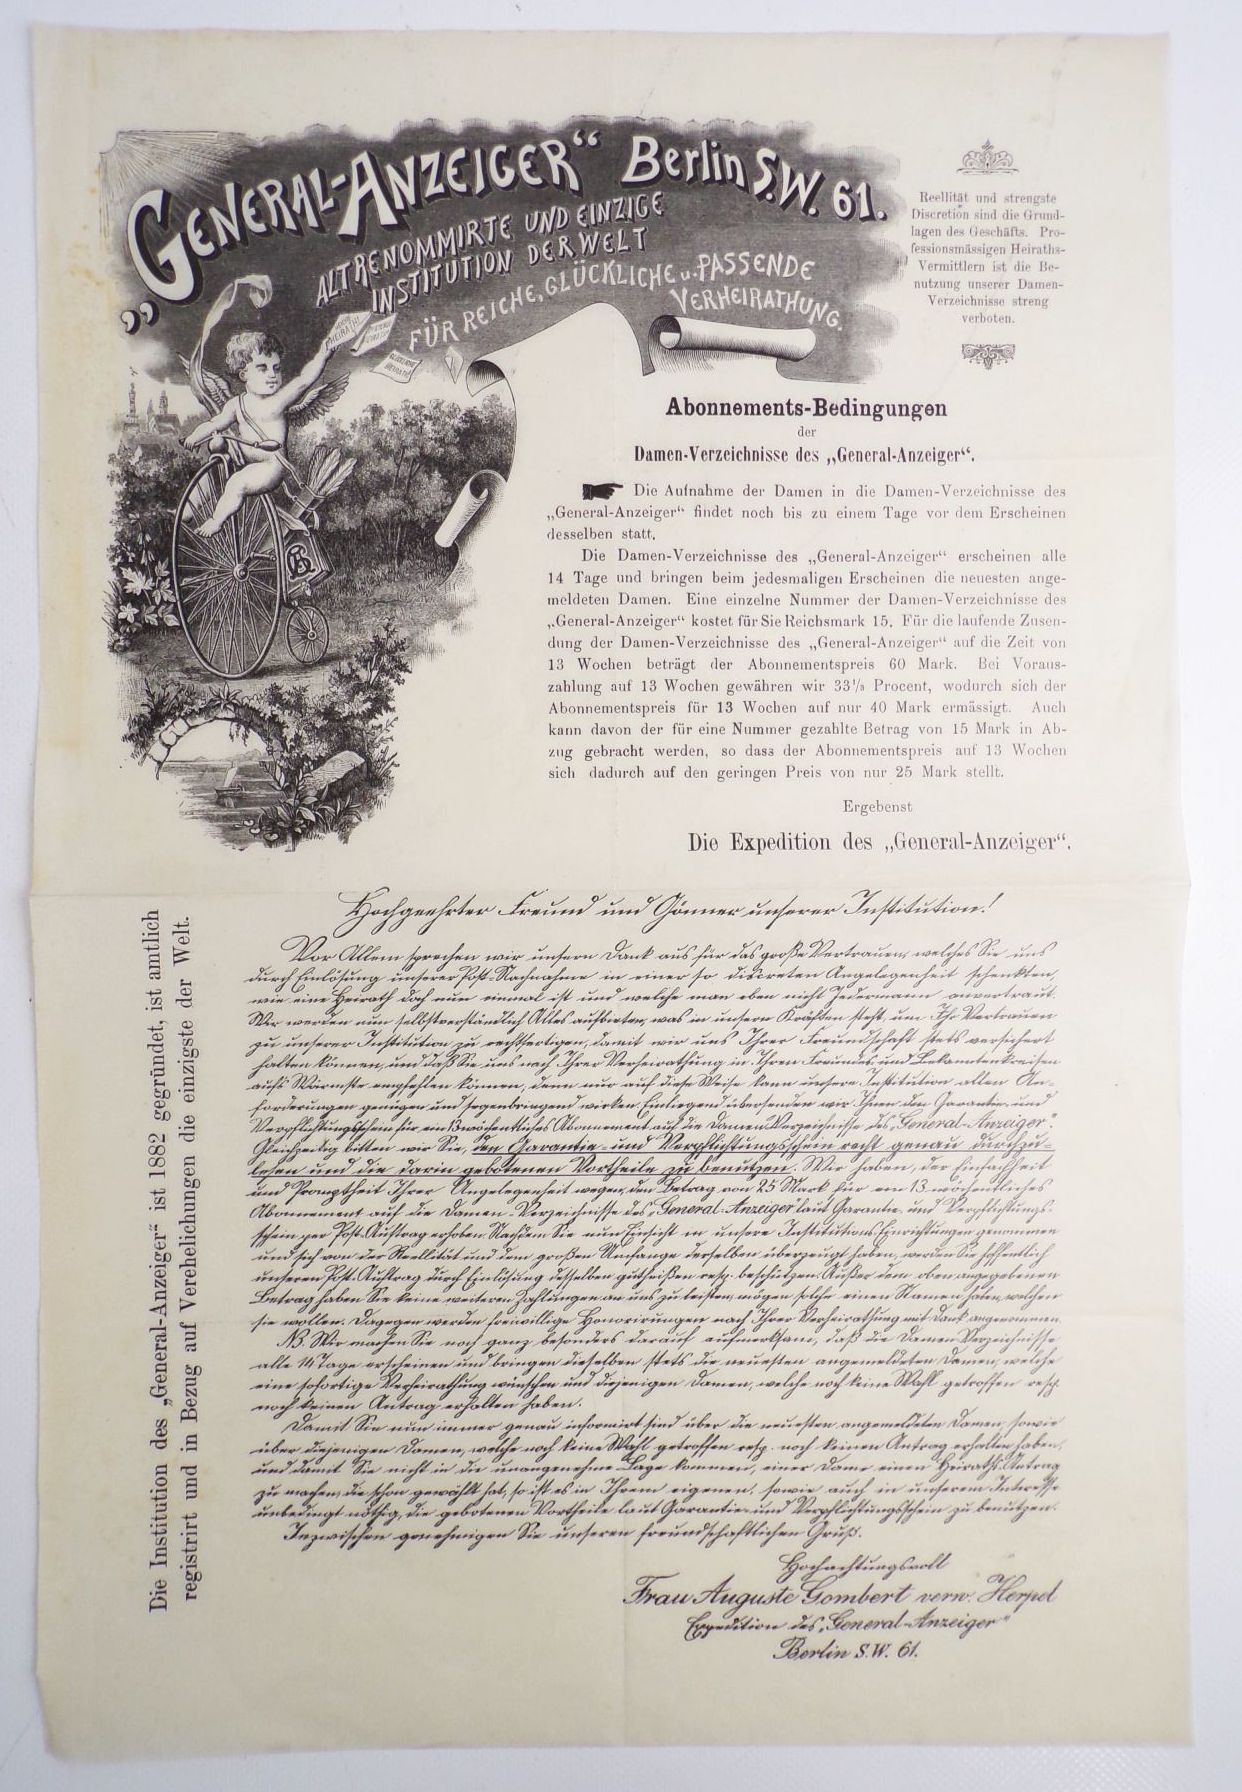 „GENERAL-ANZEIGER“ Berlin S.W. 61.
ALTRENOMMIRTE UND EINZIGE
INSTITUTION DER WELT
FÜR REICHE, GLÜCKLICHE u. PASSENDE
VERHEIRATHUNG.
Reellität und strengste
Discretion sind die Grund-
lagen des Geschäfts. Pro-
fessionsmässigen Heiraths-
Vermittlern ist die Be-
nutzung unserer Damen-
Verzeichnisse streng
verboten.
Abonnements-Bedingungen
der
Damen-Verzeichnisse des „General-Anzeiger“.
Die Aufnahme der Damen in die Damen-Verzeichnisse des
„General-Anzeiger“ findet noch bis zu einem Tage vor dem Erscheinen
desselben statt.
Die Damen-Verzeichnisse des „General-Anzeiger“ erscheinen alle
14 Tage und bringen beim jedesmaligen Erscheinen die neuesten ange-
meldeten Damen. Eine einzelne Nummer der Damen-Verzeichnisse des
„General-Anzeiger“ kostet für Sie Reichsmark 15. Für die laufende Zusen-
dung der Damen-Verzeichnisse des „General-Anzeiger“ auf die Zeit von
13 Wochen beträgt der Abonnementspreis 60 Mark. Bei Voraus-
zahlung auf 13 Wochen gewähren wir 33⅓ Procent, wodurch sich der
Abonnementspreis für 13 Wochen auf nur 40 Mark ermässigt. Auch
kann davon der für eine Nummer gezahlte Betrag von 15 Mark in Ab-
zug gebracht werden, so dass der Abonnementspreis auf 13 Wochen
sich dadurch auf den geringen Preis von nur 25 Mark stellt.
Ergebenst
Die Expedition des „General-Anzeiger“.
Die Institution des „General-Anzeiger“ ist 1882 gegründet, ist amtlich
registrirt und in Bezug auf Verehelichungen die einzigste der Welt.
Hochgeehrter Freund und Gönner unserer Institution!
Vor Allem sprechen wir unsern Dank aus für das große Vertrauen, welches Sie uns
durch Einlösung unserer Post-Nachnahme in einer so discreten Angelegenheit schenkten,
wie eine Heirath doch nun einmal ist und welche man eben nicht Jedermann anvertraut.
Wir werden nun selbstverständlich Alles aufbieten, was in unsern Kräften steht, um Ihr Vertrauen
zu unserer Institution zu rechtfertigen, damit wir uns Ihrer Freundschaft stets versichert
halten können, und daß Sie uns nach Ihrer Verheirathung in Ihren Freundes- und Bekanntenkreisen
aufs Wärmste empfehlen können, denn nur auf diese Weise kann unsere Institution allen An-
forderungen genügen und segenbringend wirken. Einliegend übersenden wir Ihnen den Garantie- und
Verpflichtungsschein für ein 13 wöchentliches Abonnement auf die Damen-Verzeichnisse des „General-Anzeiger“.
Gleichzeitig bitten wir Sie, den Garantie- und Verpflichtungsschein recht genau durchzu-
lesen und die darin gebotenen Vortheile zu benutzen. Wir haben, der Einfachheit
und Promptheit Ihrer Angelegenheit wegen, den Betrag von 25 Mark für ein 13 wöchentliches
Abonnement auf die Damen-Verzeichnisse des „General-Anzeiger“ laut Garantie- und Verpflichtungs-
schein per Post-Auftrag erhoben. Nachdem Sie nun Einsicht in unsere Institutions-Einrichtungen genommen
und sich von der Reellität und dem großen Umfange derselben überzeugt haben, werden Sie hoffentlich
unseren Post-Auftrag durch Einlösung desselben gutheißen resp. beschützen. Außer dem oben angegebenen
Betrag haben Sie keine weiteren Zahlungen an uns zu leisten, mögen solche einen Namen haben, welchen
sie wollen. Dagegen werden freiwillige Honorirungen nach Ihrer Verheirathung mit Dank angenommen.
NB. Wir machen Sie noch ganz besonders darauf aufmerksam, daß die Damen-Verzeichnisse
alle 14 Tage erscheinen und bringen dieselben stets die neuesten angemeldeten Damen, welche
eine sofortige Verheirathung wünschen und diejenigen Damen, welche noch keine Wahl getroffen resp.
noch keinen Antrag erhalten haben.
Damit Sie nun immer genau informirt sind über die neuesten angemeldeten Damen, sowie
über diejenigen Damen, welche noch keine Wahl getroffen resp. noch keinen Antrag erhalten haben,
und damit Sie nicht in die unangenehme Lage kommen, einer Dame einen Heiraths-Antrag
zu machen, die schon gewählt hat, so ist es in Ihrem eigenen, sowie auch in unserem Interesse
unbedingt nöthig, die gebotenen Vortheile laut Garantie- und Verpflichtungsschein zu benutzen.
Inzwischen genehmigen Sie unseren freundschaftlichen Gruß.
Hochachtungsvoll
Frau Auguste Gombert verw. Herpel
Expedition des „General-Anzeiger“
Berlin S.W. 61.